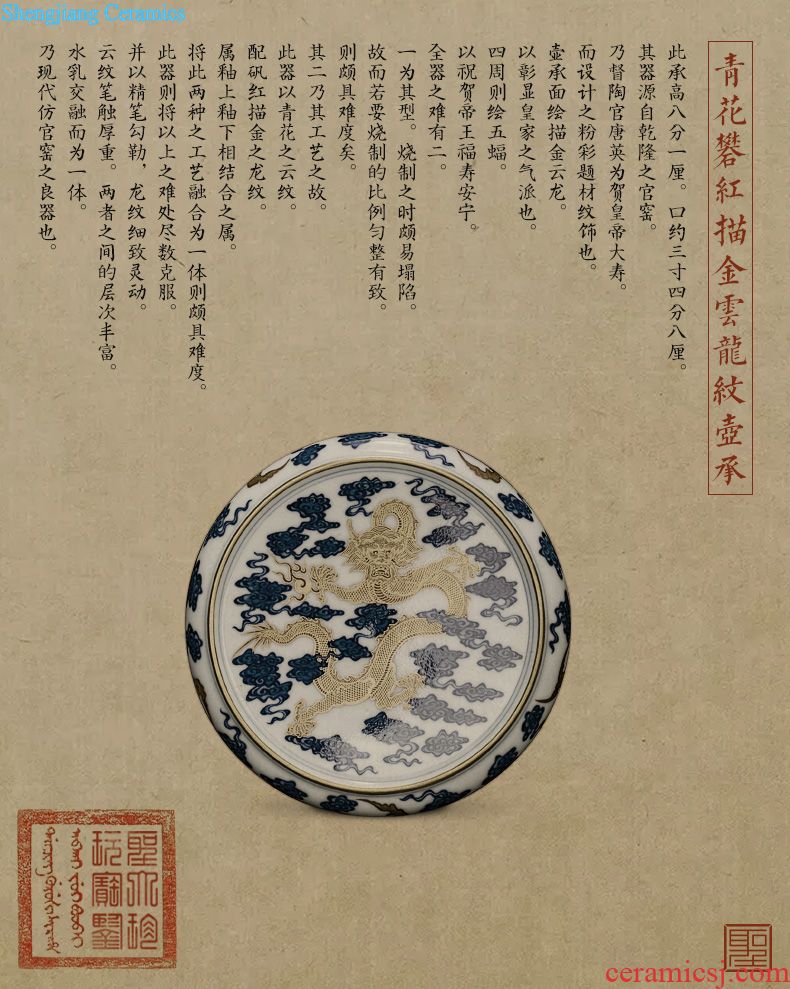 Shengjiang Ceramics
青花礬紅描金雲龍紋壺承
此承高八分一厘。口约三寸四分八厘。
其器源自乾隆之官窑。
乃督陶官唐英为贺皇帝大寿。
而设计之粉彩题材纹饰也。
壶承面绘描金云龙。
以彰显皇家之气派也。
四周则绘五蝠。
以祝贺帝王福寿安宁。
全器之难有二。
一为其型。烧制之时颇易塌陷。
故而若要烧制的比例匀整有致。
则颇具难度矣。
其二乃其工艺之故。
此器以青花之云纹。
配矾红描金之龙纹。
属釉上釉下相结合之属。
将此两种之工艺融合为一体则颇具难度。
此器则将以上之难处尽数克服。
并以精笔勾勒，龙纹细致灵动。
云纹笔触厚重。两者之间的层次丰富。
水乳交融而为一体。
乃现代仿官窑之良器也。
ceramicsj.com